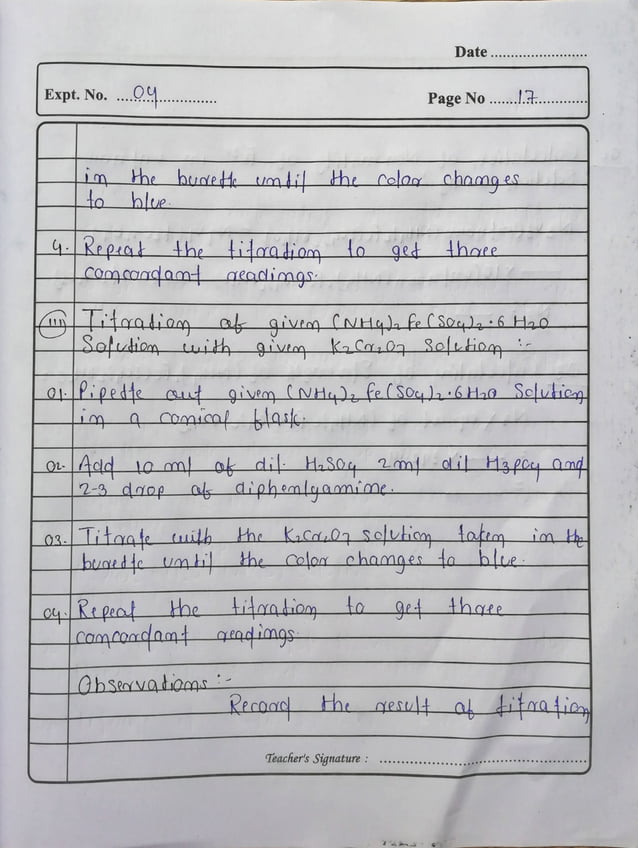 Date ..........................
Expt. No. ....04...............
Page No ........17..............
in the burette until the color changes
to blue.
4. Repeat the titration to get three
concordant readings.
(III) Titration of given (NH4)2 Fe(SO4)2·6 H2O
Solution with given K2Cr2O7 Solution :-
01. Pipette out given (NH4)2 Fe(SO4)2·6H2O Solution
in a conical flask.
02. Add 10 ml of dil. H2SO4 2ml dil H3PO4 and
2-3 drop of diphenlyamine.
03. Titrate with the K2Cr2O7 solution taken in the
burette until the color changes to blue.
04. Repeat the titration to get three
concordant readings.
Observations :-
Record the result of titration
Teacher's Signature : ..........................................................